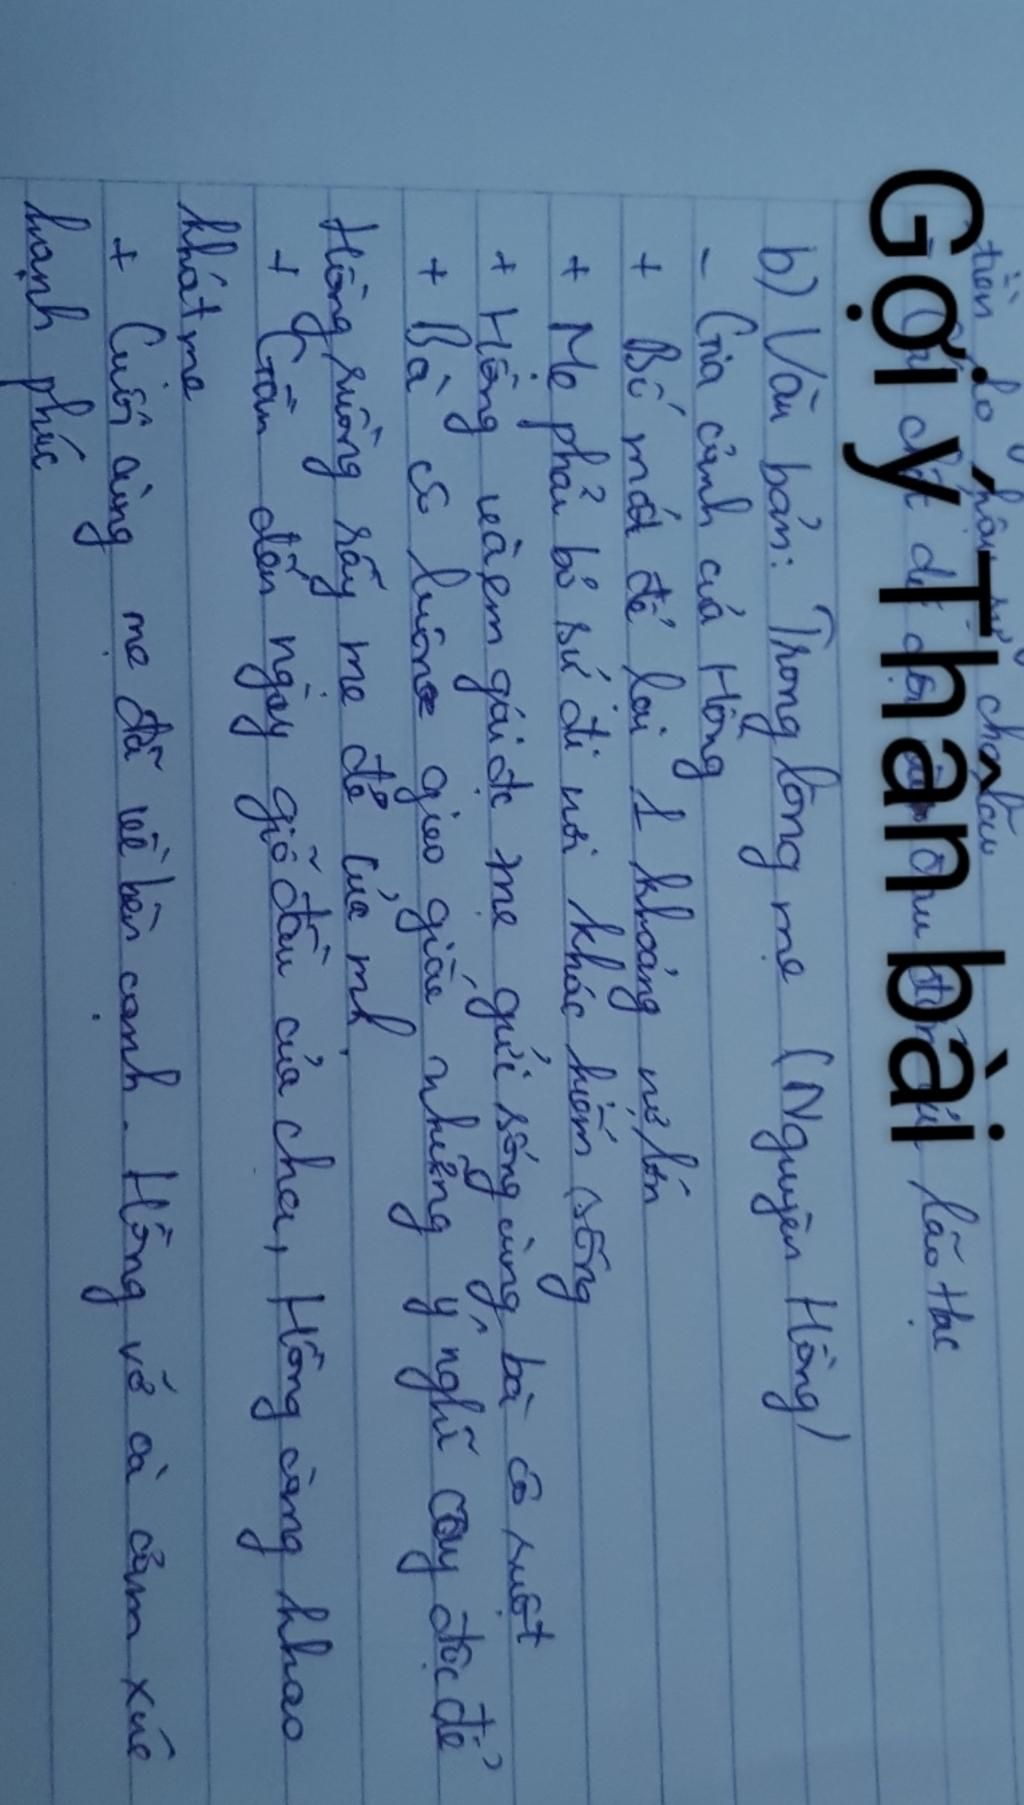 tiền lo hậu sự cho
Gợi ý Thân bài
lão Hạc
b) Văn bản: Trong lòng mẹ (Nguyên Hồng)
- Gia cảnh của Hồng
+ Bố mất để lại 1 khoảng nợ lớn
+ Mẹ phải bỏ xứ đi nơi khác kiếm sống
+ Hồng và em gái đc mẹ gửi sống cùng bà cô ruột
+ Bà cô luôn gieo giắc những ý nghĩ cay độc để
Hồng ruồng rẫy mẹ đẻ của mh
+ Gần đến ngày giỗ đầu của cha, Hồng càng khao
khát mẹ
+ Cuối cùng mẹ đã về bên cạnh. Hồng vỡ oà cảm xúc
hạnh phúc